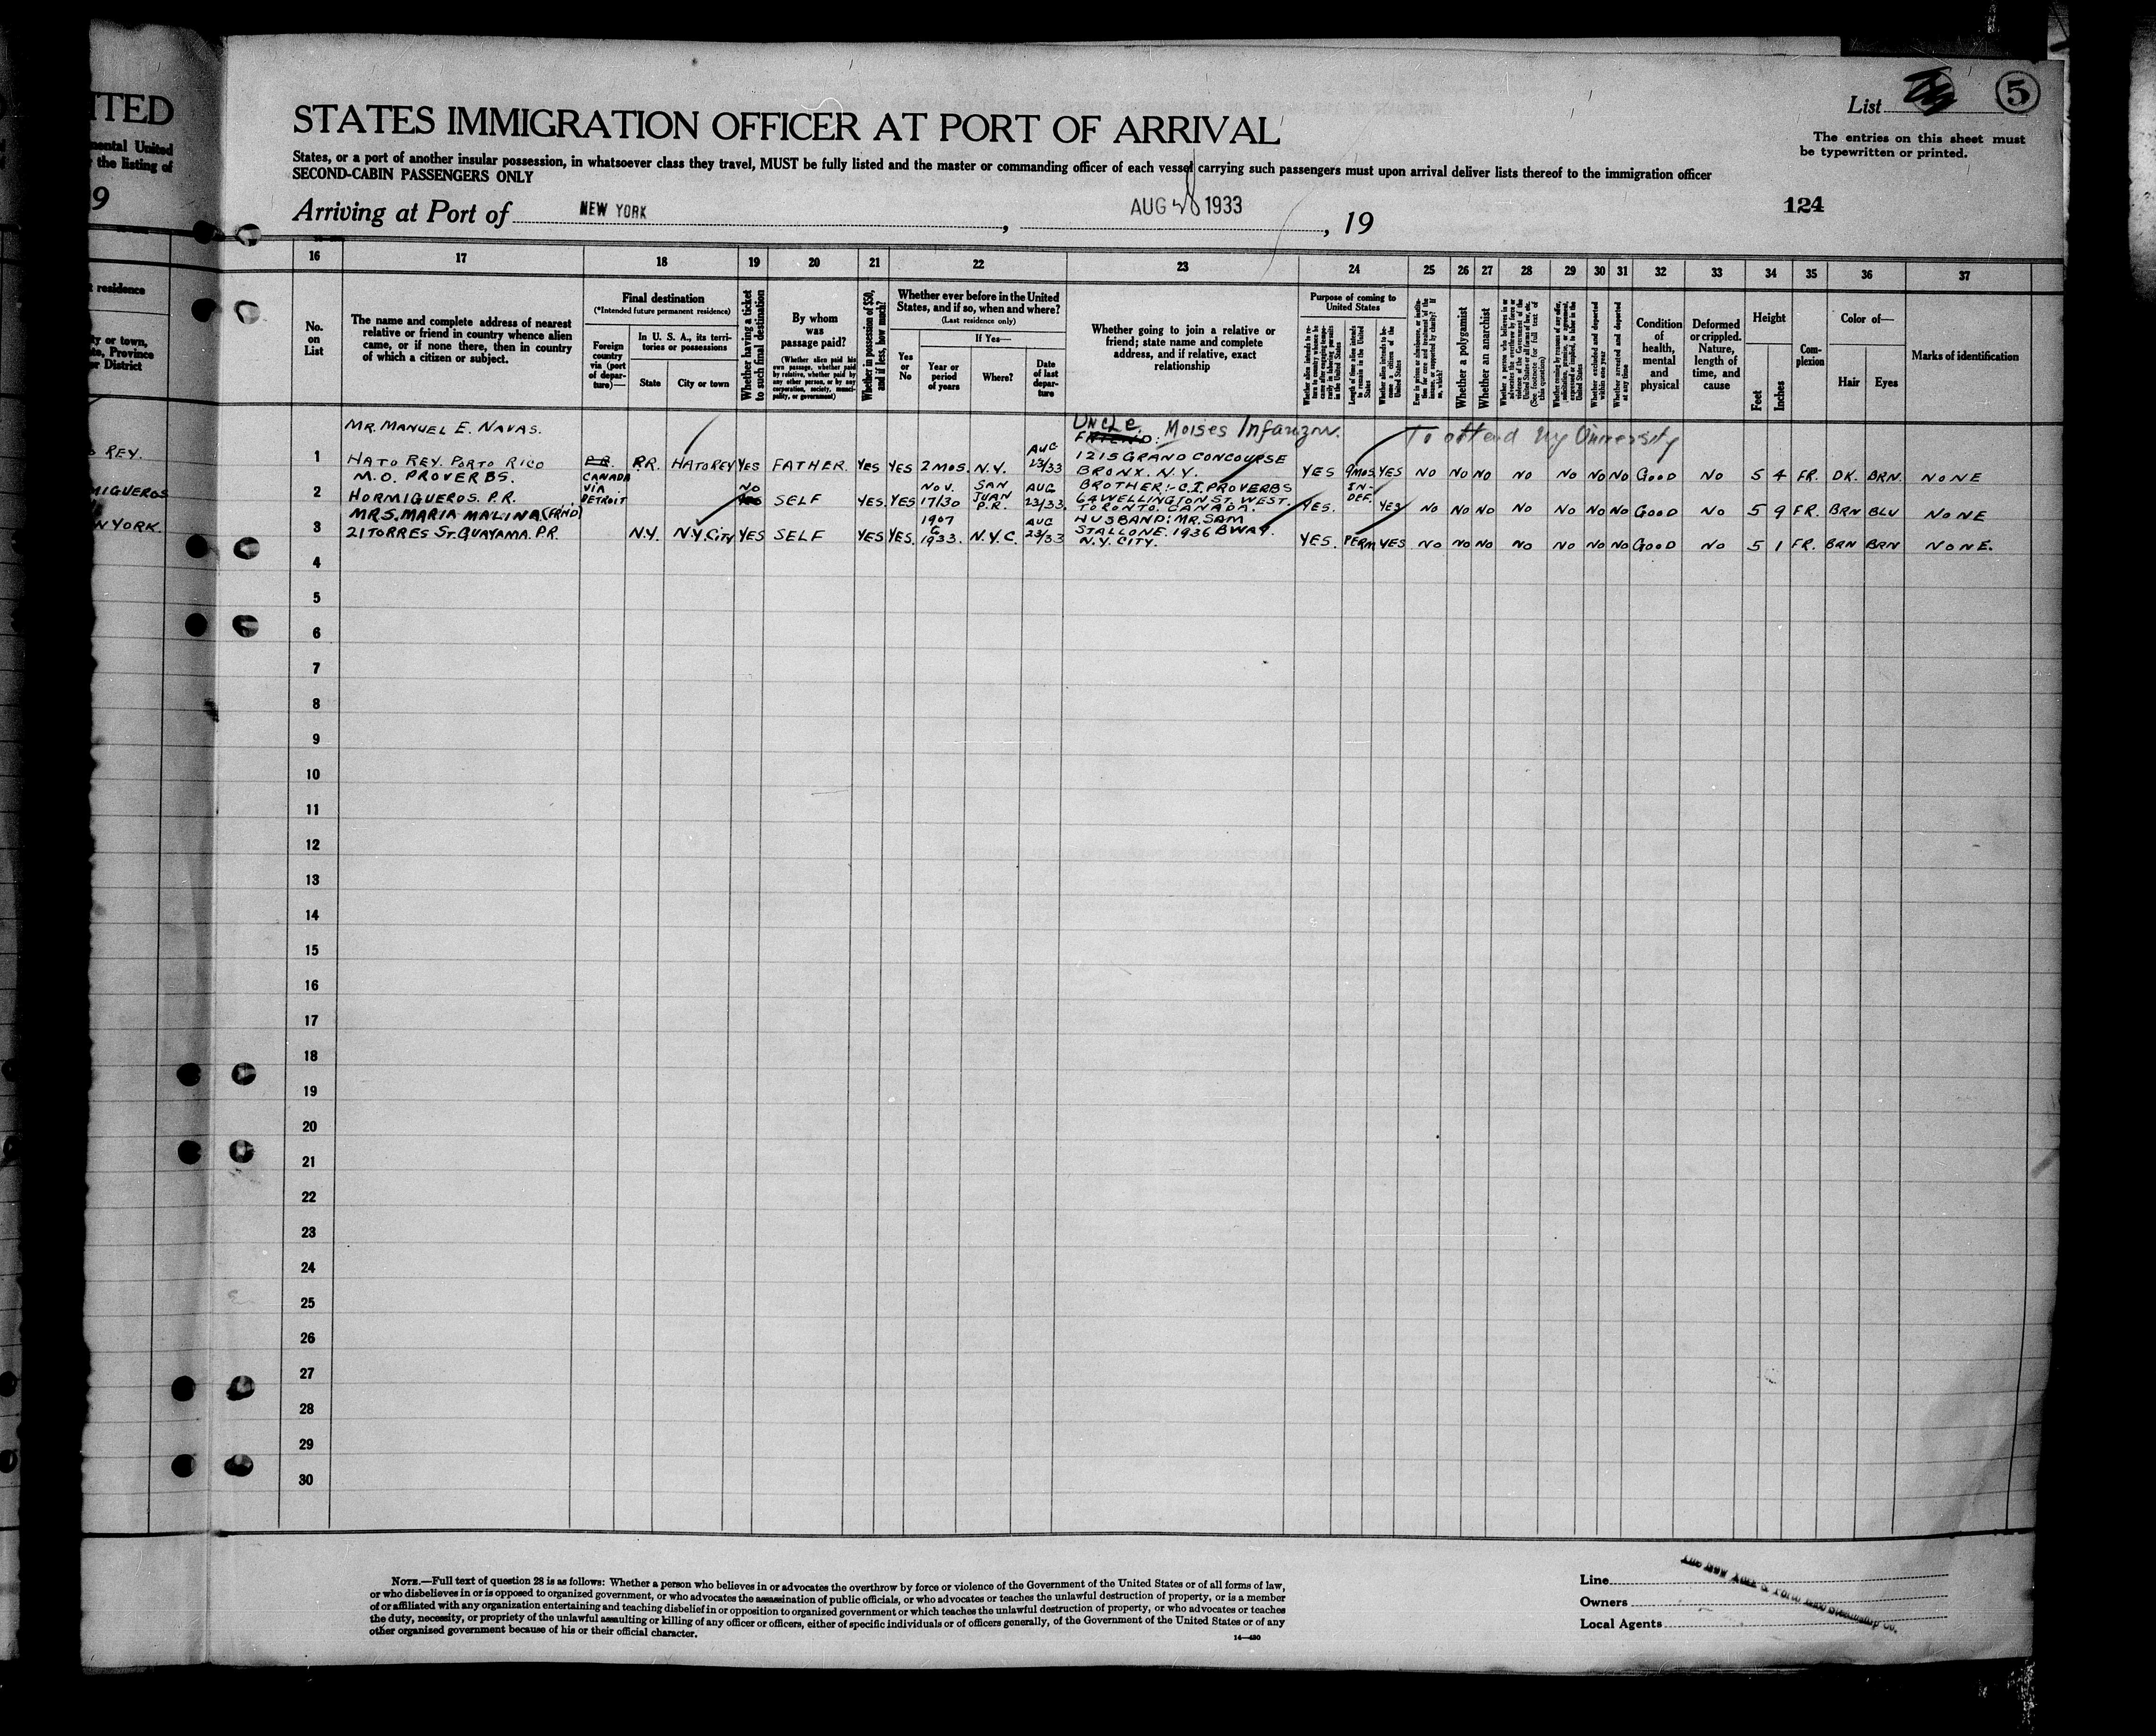 ITED
mental United
the listing of
9
t residence
ty or town,
te, Province
or District
REY.
MIGUEROS
NYORK.
List
5
STATES IMMIGRATION OFFICER AT PORT OF ARRIVAL
The entries on this sheet must
be typewritten or printed.
States, or a port of another insular possession, in whatsoever class they travel, MUST be fully listed and the master or commanding officer of each vessel carrying such passengers must upon arrival deliver lists thereof to the immigration officer
SECOND-CABIN PASSENGERS ONLY
Arriving at Port of NEW YORK, AUG 28 1933, 19
124
16 17 18 19 20 21 22 23 24 25 26 27 28 29 30 31 32 33 34 35 36 37
No.
on
List
The name and complete address of nearest
relative or friend in country whence alien
came, or if none there, then in country
of which a citizen or subject.
Final destination
(*Intended future permanent residence)
Foreign
country
via (port
of depar-
ture)—
In U. S. A., its terri-
tories or possessions
State
City or town
Whether having a ticket
to such final destination
By whom
was
passage paid?
(Whether alien paid his
own passage, whether paid
by relative, whether paid by
any other person, or by any
corporation, society, munici-
pality, or government)
Whether in possession of $50,
and if less, how much?
Whether ever before in the United
States, and if so, when and where?
(Last residence only)
Yes
or
No
If Yes—
Year or
period
of years
Where?
Date
of last
depar-
ture
Whether going to join a relative or
friend; state name and complete
address, and if relative, exact
relationship
Purpose of coming to
United States
Length of time alien intends
to remain in the United
States
Whether alien intends to be-
come a citizen of the
United States
Whether a polygamist
Whether an anarchist
Whether excluded and deported
within one year
Whether arrested and deported
at any time
Condition
of
health,
mental
and
physical
Deformed
or crippled.
Nature,
length of
time, and
cause
Height
Feet
Inches
Com-
plexion
Color of—
Hair
Eyes
Marks of identification
MR. MANUEL E. NAVAS.
UNCLE. Moises Infanzon.
FRIEND:
To attend NY University
1 HATO REY. PORTO RICO P.R. P.R. HATO REY YES FATHER. YES YES 2 MOS. N.Y. AUG 23/33 1215 GRAND CONCOURSE
BRONX. N.Y. YES 9MOS YES NO NO NO NO NO NO NO GOOD NO 5 4 FR. DK. BRN. NONE
M.O. PROVERBS.
2 HORMIGUEROS. P.R. CANADA VIA DETROIT NO YES SELF YES. YES NOV. 17/30 SAN JUAN P.R. AUG 23/33. BROTHER:- C.I. PROVERBS
64 WELLINGTON ST. WEST.
TORONTO. CANADA. YES. IN-DEF. YES NO NO NO NO NO NO NO GOOD NO 5 9 FR. BRN BLU NONE
MRS. MARIA MALINA (FRND)
3 21 TORRES ST. GUAYAMA. P.R. N.Y. N.Y. CITY YES SELF YES YES. 1907 1933. N.Y.C. AUG 23/33 HUSBAND: MR. SAM
STALLONE. 1936 BWAY.
N.Y. CITY. YES. PERM YES NO NO NO NO NO NO NO GOOD NO 5 1 FR. BRN BRN NONE.
4
5
6
7
8
9
10
11
12
13
14
15
16
17
18
19
20
21
22
23
24
25
26
27
28
29
30
NOTE.—Full text of question 28 is as follows: Whether a person who believes in or advocates the overthrow by force or violence of the Government of the United States or of all forms of law,
or who disbelieves in or is opposed to organized government, or who advocates the assassination of public officials, or who advocates or teaches the unlawful destruction of property, or is a member
of or affiliated with any organization entertaining and teaching disbelief in or opposition to organized government or which teaches the unlawful destruction of property, or who advocates or teaches
the duty, necessity, or propriety of the unlawful assaulting or killing of any officer or officers, either of specific individuals or of officers generally, of the Government of the United States or of any
other organized government because of his or their official character.
14—430
Line
Owners
Local Agents
The New York & Porto Rico Steamship Co.